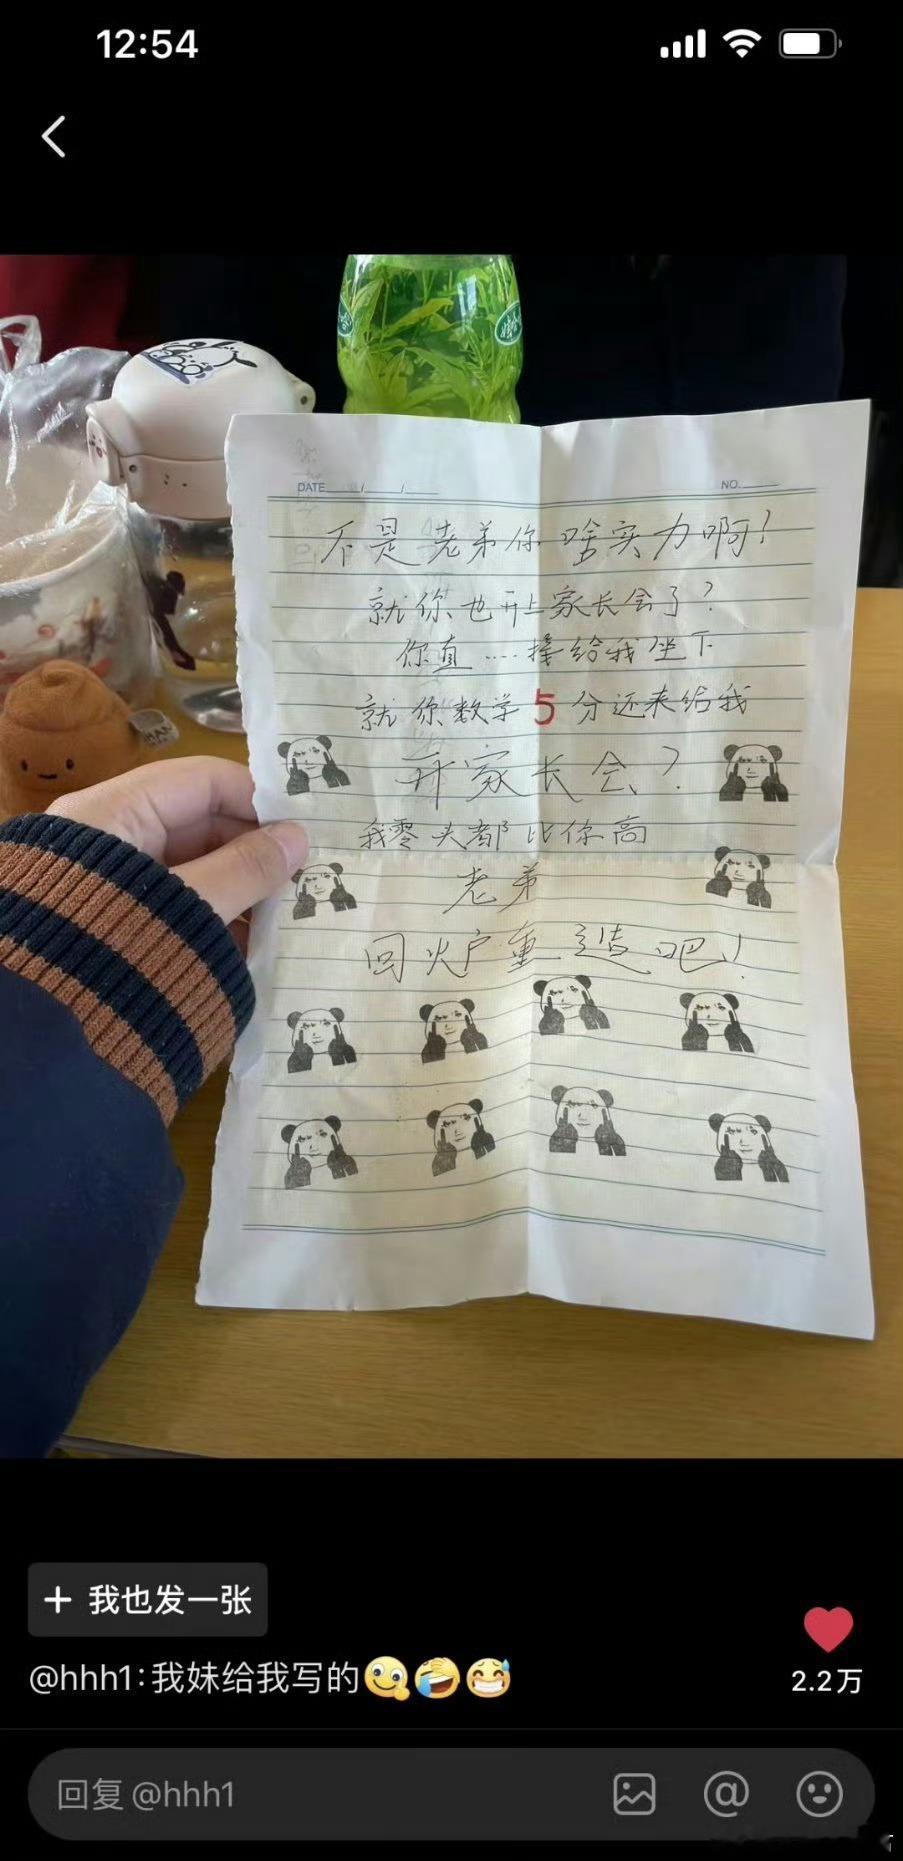 12:54
DATE / /
NO.
不是老弟你啥实力啊!
就你也开上家长会了?
你真....撞给我坐下
就你数学5分还来给我
开家长会?
我零头都比你高
老弟
回火炉重造吧!
+ 我也发一张
@hhh1:我妹给我写的
2.2万
回复 @hhh1